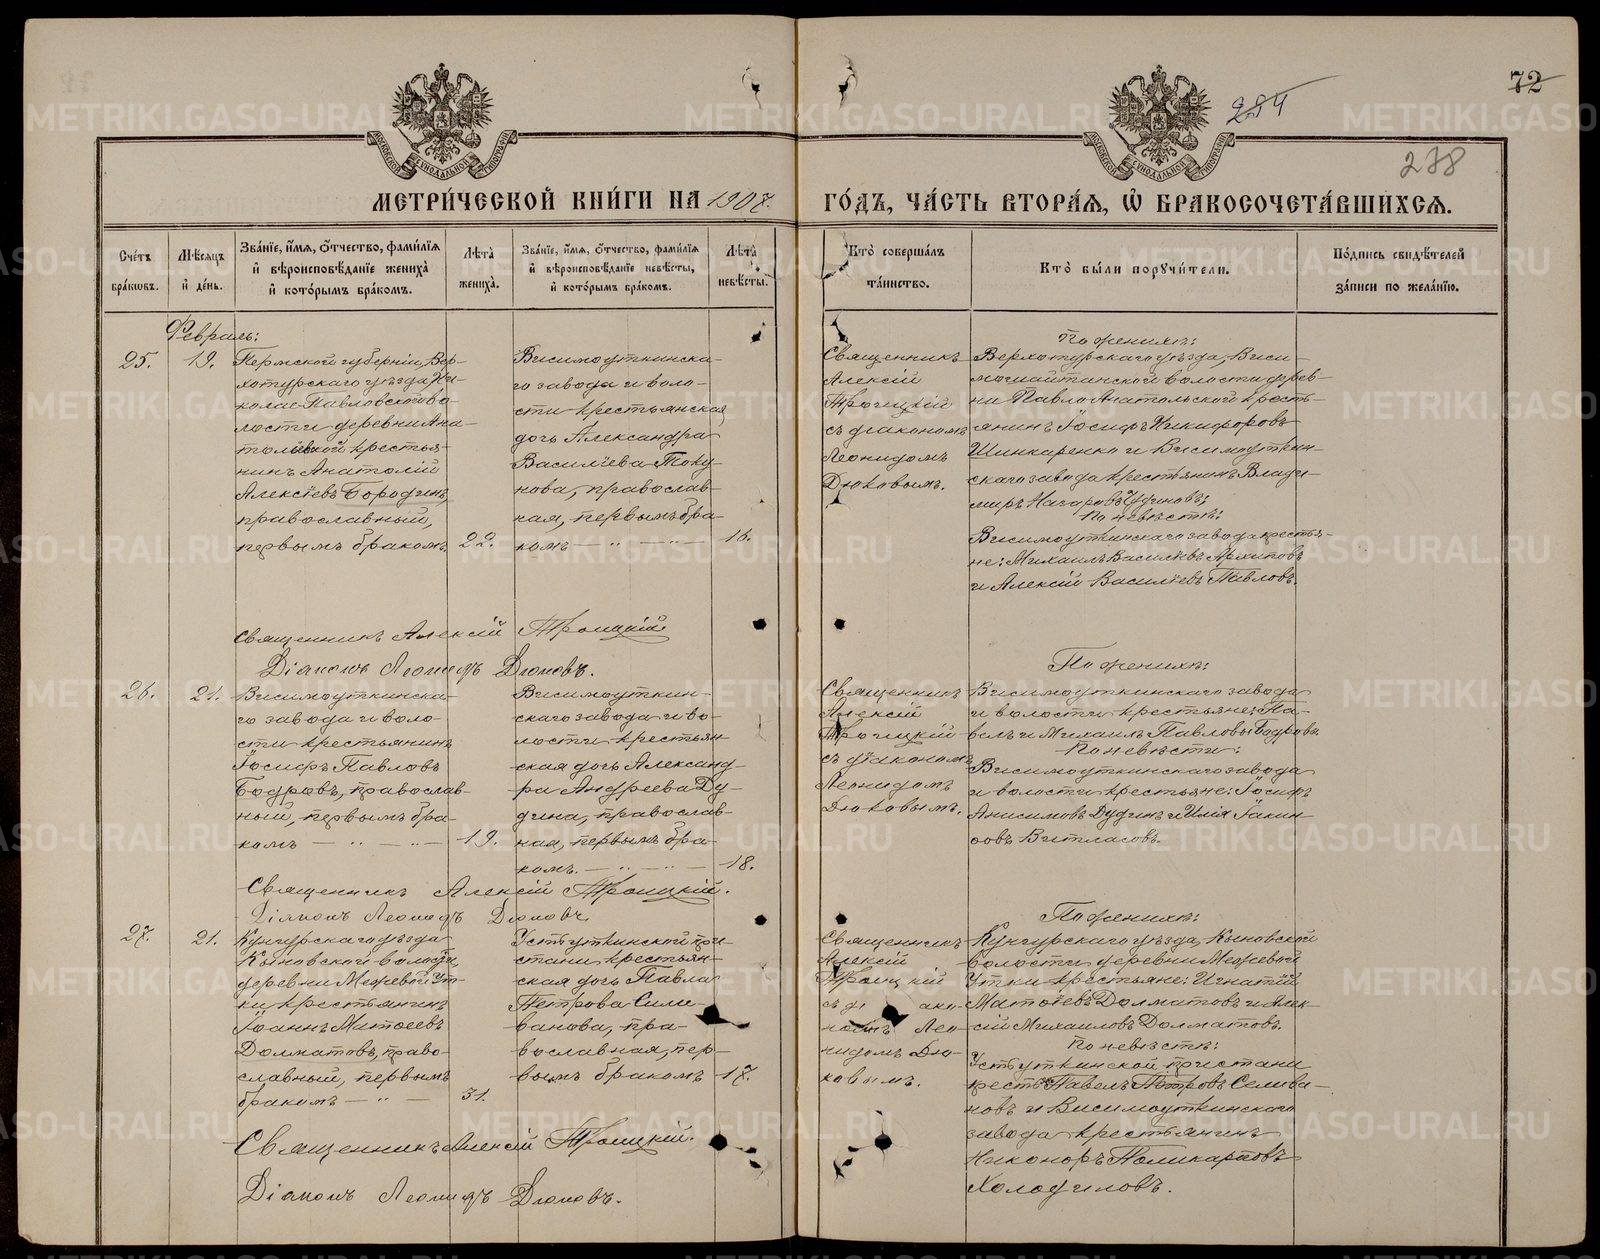 72
284
278
МОСКОВСКОЙ СУНОДАЛЬНОЙ ТИПОГРАФІИ
МОСКОВСКОЙ СУНОДАЛЬНОЙ ТИПОГРАФІИ
МЕТРИ́ЧЕСКОЙ КНИ́ГИ НА 1907.
ГО́ДЪ, ЧА́СТЬ ВТОРА́Я, Ѽ БРАКОСОЧЕТА́ВШИХСЯ.
Сче́тъ бра́кѡвъ.
Мѣ́сяцъ и҆ де́нь.
Зва́нїе, и҆́мя, ѻ҆́тчество, фами́лїя и҆ вѣроисповѣ́данїе жениха̀ и҆ кото́рымъ бра́комъ.
Лѣ́та жениха̀.
Зва́нїе, и҆́мя, ѻ҆́тчество, фами́лїя и҆ вѣроисповѣ́данїе невѣ́сты, и҆ кото́рымъ бра́комъ.
Лѣ́та невѣ́сты.
Кто̀ соверша́лъ та́инство.
Кто̀ бы́ли порꙋчи́тели.
По́дпись свидѣ́телей за́писи по жела́нїю.
Февраль:
25.
19.
Пермской губерніи, Вер-
хотурскаго уѣзда, Ни-
колае-Павловской во-
лости деревни Ана-
тольевской крестья-
нинъ Анатолій
Алексѣевъ Бородинъ,
православный,
первымъ бракомъ.
22.
Висимоуткинска-
го завода и воло-
сти крестьянская
дочь Александра
Васильева Току-
нова, православ-
ная, первымъ бра-
комъ — „ — „ —
16.
Священникъ
Алексій
Троицкій
съ діакономъ
Леонидомъ
Дюковымъ.
По женихѣ:
Верхотурскаго уѣзда, Виси-
мошайтанской волости дерев-
ни Павло-Анатольской кресть-
янинъ Іосифъ Никифоровъ
Шинкаренко и Висимоуткин-
скаго завода крестьянинъ Влади-
миръ Назаровъ
По невѣстѣ:
Висимоуткинскаго завода крестья-
не: Михаилъ Васильевъ Архиповъ
и Алексій Васильевъ Павловъ.
Священникъ Алексій Троицкій
Діаконъ Леонидъ Дюковъ.
26.
21.
Висимоуткинска-
го завода и воло-
сти крестьянинъ
Іосифъ Павловъ
Бодровъ, православ-
ный, первымъ бра-
комъ — „ — „ —
19.
Висимоуткин-
скаго завода и во-
лости крестьян-
ская дочь Александ-
ра Андреева Ду-
дина, православ-
ная, первымъ бра-
комъ. — „ — „ —
18.
Священникъ
Алексій
Троицкій
съ діакономъ
Леонидомъ
Дюковымъ.
По женихѣ:
Висимоуткинскаго завода
и волости крестьяне: Па-
велъ и Михаилъ Павловы Бодровы.
По невѣстѣ:
Висимоуткинскаго завода
и волости крестьяне: Іосифъ
Анисимовъ Дудинъ и Илія Іакин-
ѳовъ
Священникъ Алексій Троицкій.
Діаконъ Леонидъ Дюковъ.
27.
21.
Кунгурскаго уѣзда
Кыновской волости,
деревни Межевой Ут-
ки крестьянинъ
Іоаннъ Матѳеевъ
Долматовъ, право-
славный, первымъ
бракомъ — „ —
31.
Устьуткинской при-
стани крестьян-
ская дочь Павла
Петрова Сели-
ванова, пра-
вославная, пер-
вымъ бракомъ
17.
Священникъ
Алексій
Троицкій
съ діако-
номъ Лео-
нидомъ Дю-
ковымъ.
По женихѣ:
Кунгурскаго уѣзда, Кыновской
волости деревни Межевой
Утки крестьяне: Игнатій
Матѳеевъ Долматовъ и Алек-
сій Михаиловъ Долматовъ.
По невѣстѣ:
Устьуткинской пристани
крест. Павелъ Петровъ Селива-
новъ и Висимоуткинскаго
завода крестьянинъ
Никоноръ Поликарповъ
Холодиловъ.
Священникъ Алексій Троицкій.
Діаконъ Леонидъ Дюковъ.
METRIKI.GASO-URAL.RU